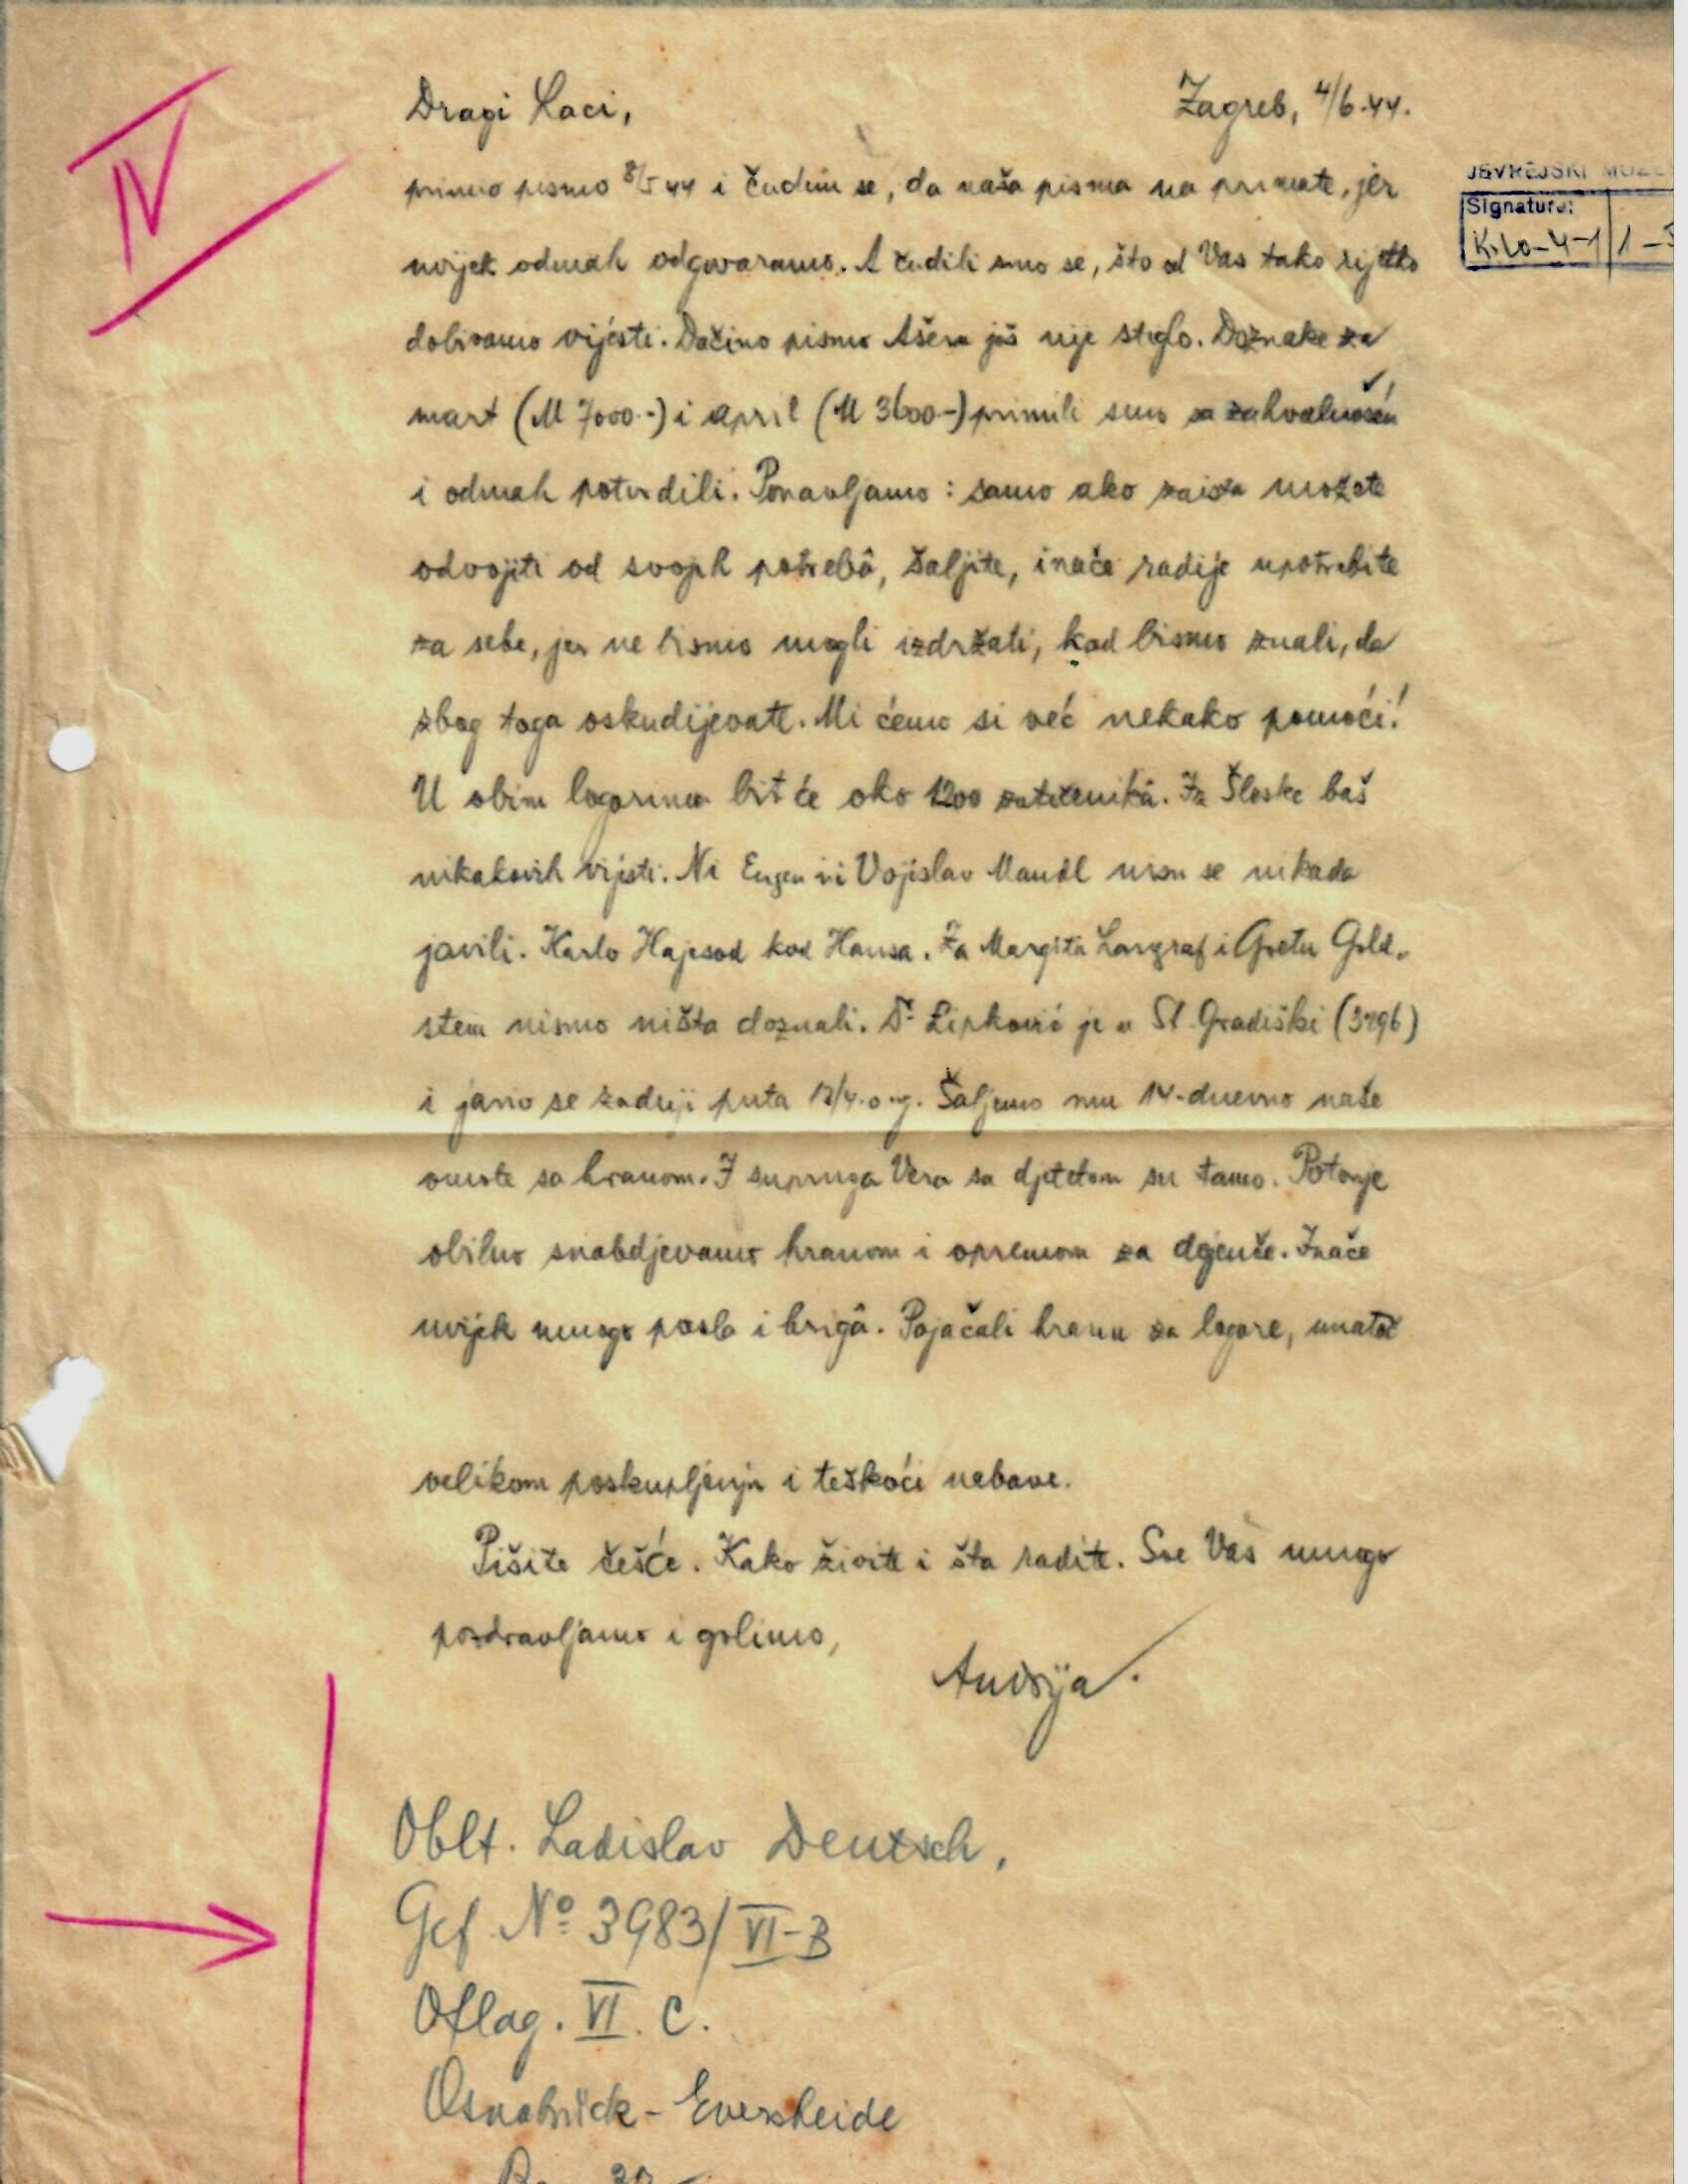 IV
Dragi Laci,
Zagreb, 4/6.44.
JEVREJSKI
Signatura:
K.20-4-1/1-
primio pismo 8/5 44 i čudim se, da naša pisma na primate, jer
uvijek odmah odgovaramo. A čudili smo se, što od Vas tako rijetko
dobivamo vijesti. Dačino pismo Ašeru još nije stiglo. Doznake za
mart (M 7000.-) i april (M 3600-) primili smo sa zahvalnošću
i odmah potvrdili. Ponavljamo: samo ako zaista možete
odvojiti od svojih potrebâ, šaljite, inače radije upotrebite
za sebe, jer ne bismo mogli izdržati, kad bismo znali, da
zbog toga oskudijevate. Mi ćemo si već nekako pomoći!
U obim logorima bit će oko 1200 zatočenikâ. Iz Šleske baš
nikakovih vijesti. Ni Eugen ni Vojislav Mandl nisu se nikada
javili. Karlo Hajesod kod Hansa. Za Margitu i Gretu Gold-
stein nismo ništa doznali. Dr. Lipković je u St. Gradiški (3796)
i javio se zadnji puta o.g. Šaljemo mu 14-dnevno naše
omote sa hranom. I supruga Vera sa djetetom su tamo. Potonje
obilno snabdjevamo hranom i opremom za dojenče. Inače
uvijek mnogo posla i brigâ. Pojačali hranu za logore, unatoč
velikom poskupljenju i teškoći nabave.
Pišite češće. Kako živite i šta radite. Sve Vas mnogo
pozdravljamo i grlimo,
Andrija.
Oblt. Ladislav Deutsch,
Gef. No 3983/VI-B
Oflag. VI. C.
Osnabrück-Eversheide